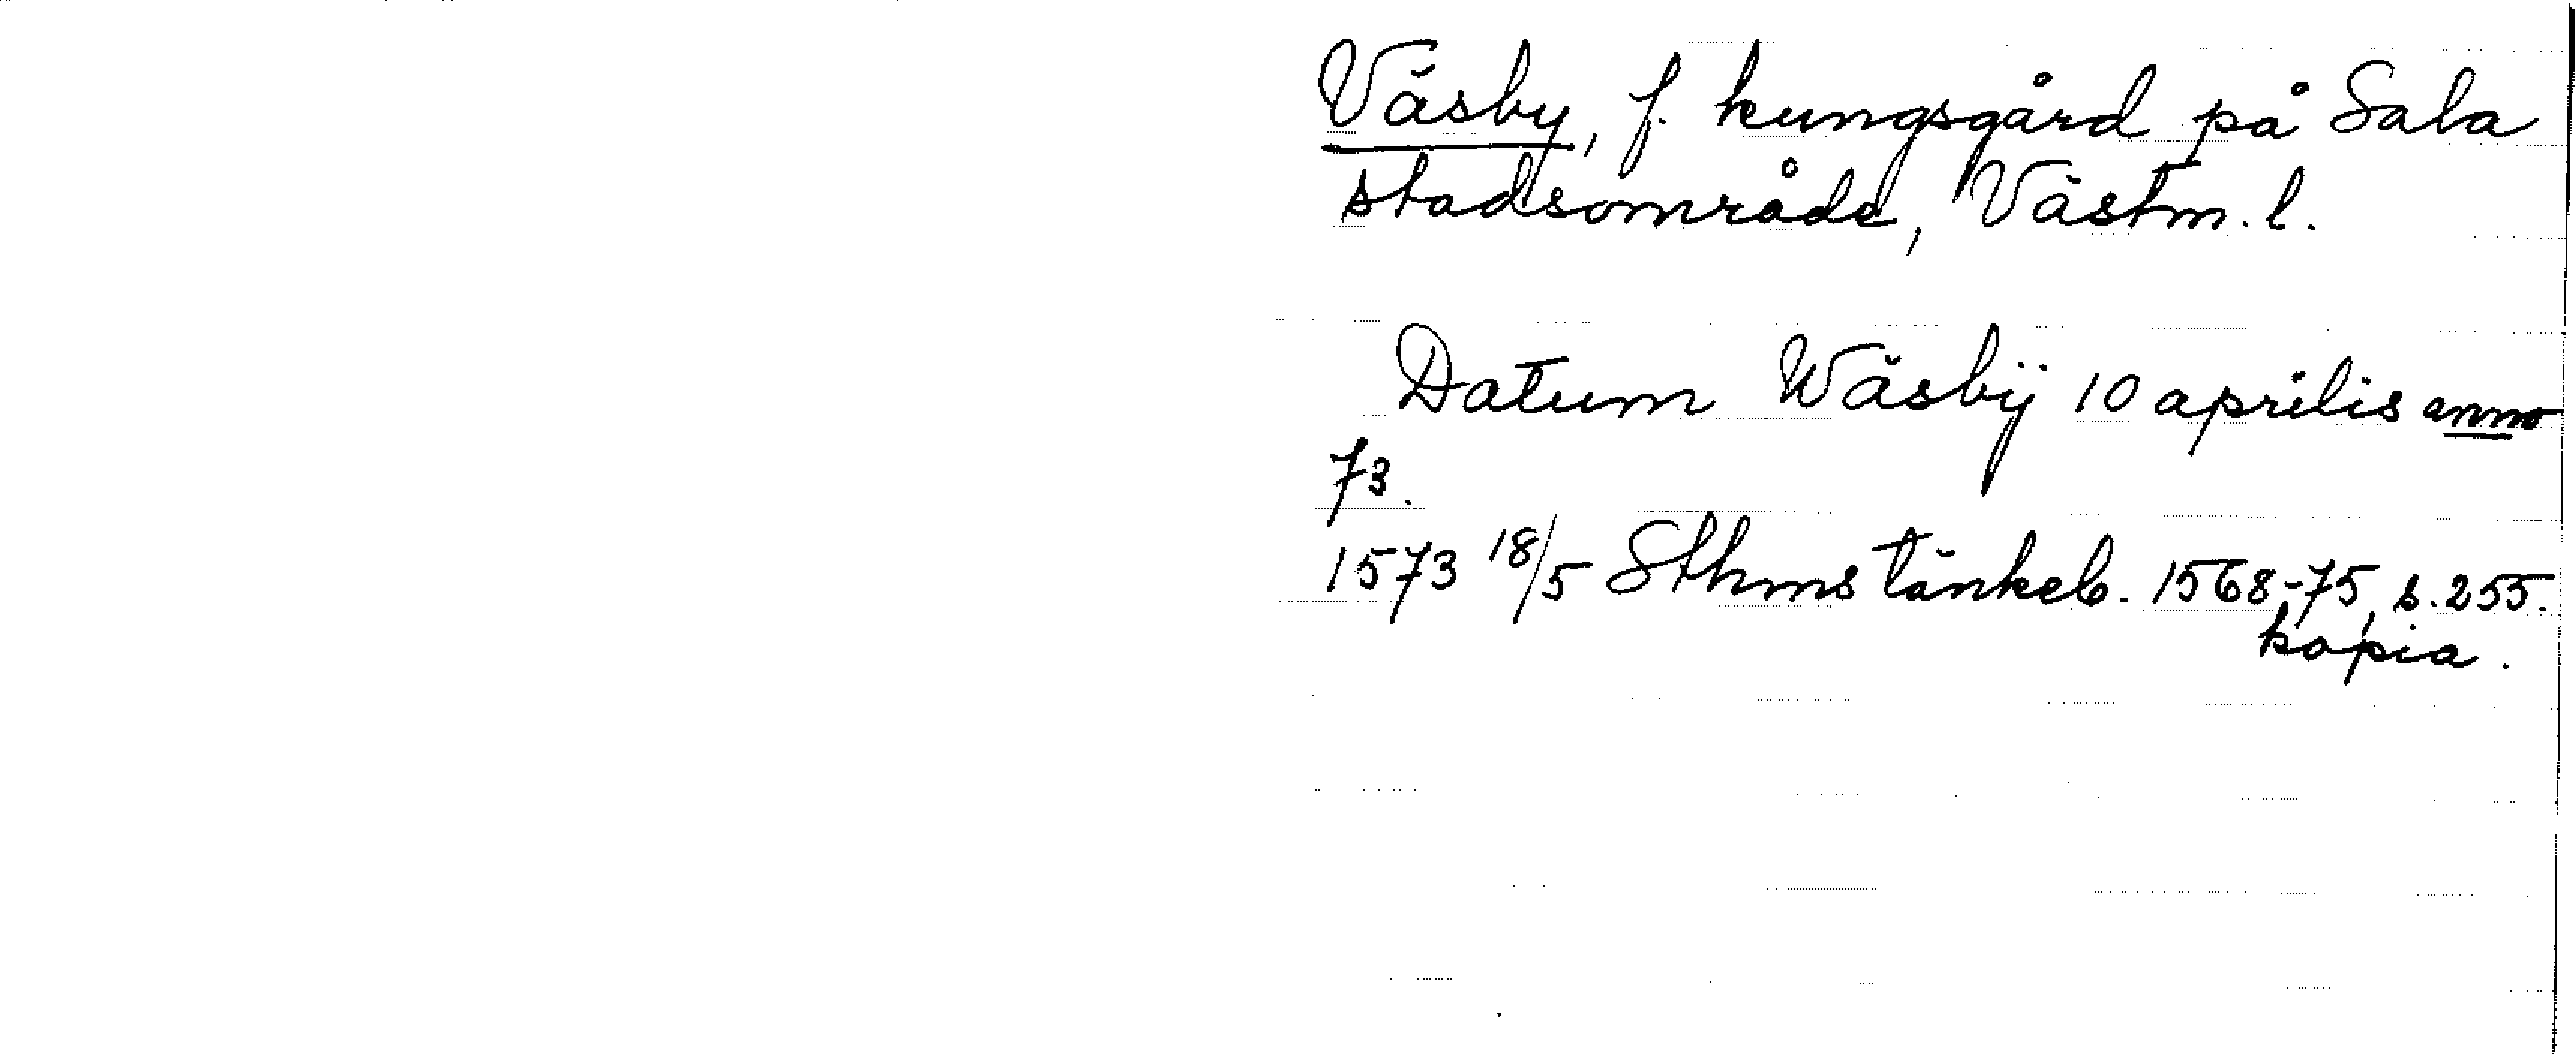 Väsby, f. kungsgård på Sala
stadsområde, Västm. l.
Datum Wäsbÿ 10 aprilis anno
73.
1573 18/5 Sthms tänkeb. 1568-75, s. 255.
kopia.